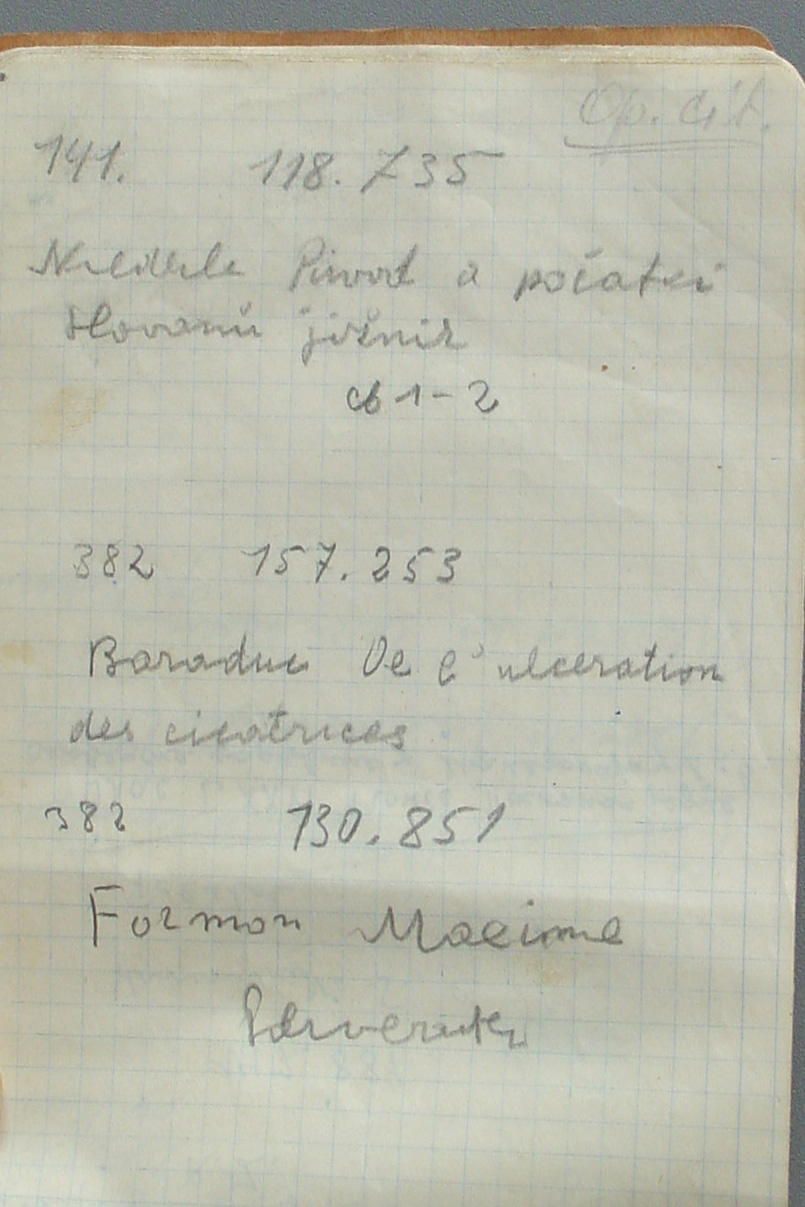 Op. cit.
141. 118.735
Niederle Původ a počatki
Slovanů jižnich
cb 1-2
382 157.253
Baraduc De l'ulceration
des cicatrices
382 130.851
Formon Maxime